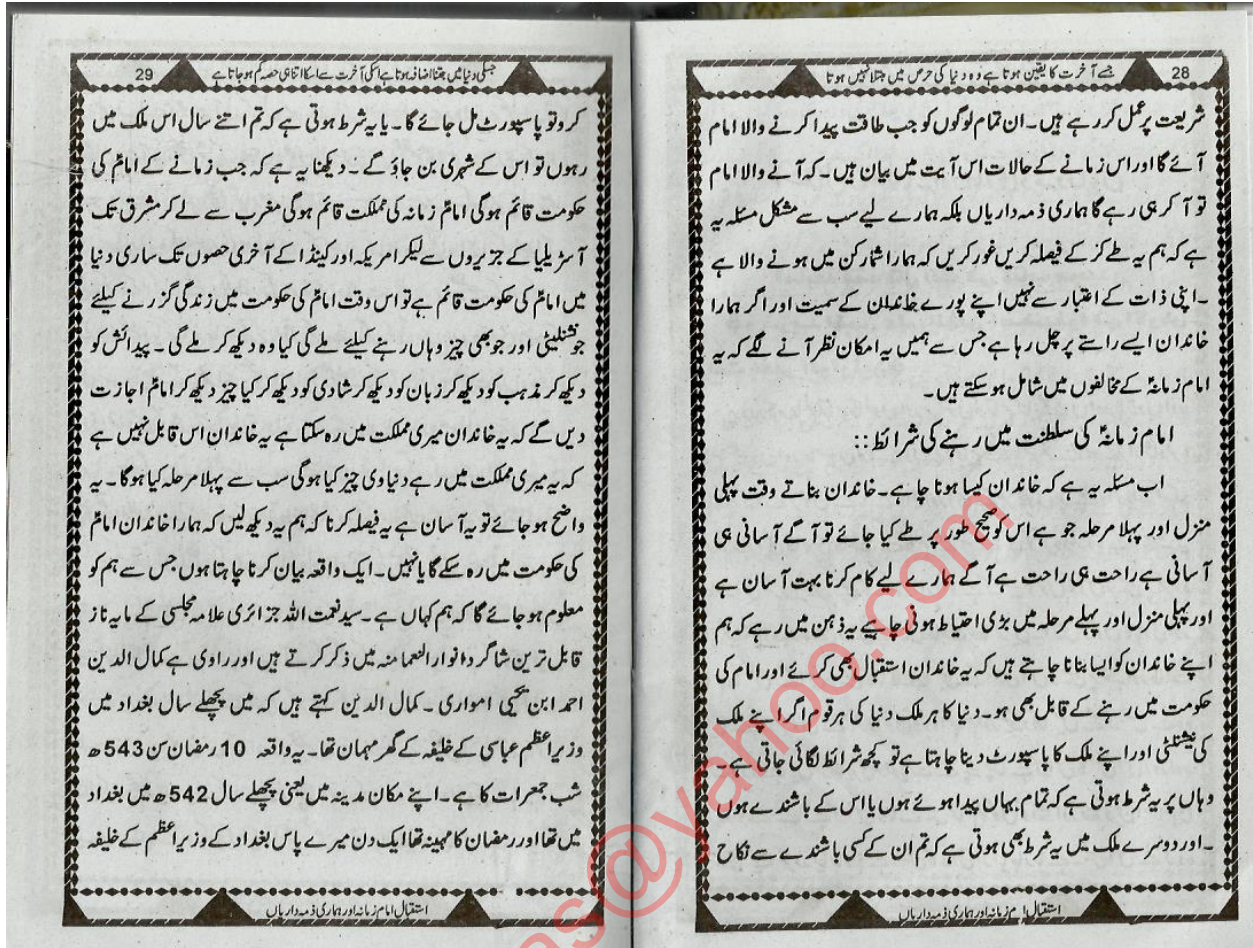 28
جسے آخرت کا یقین ہوتا ہے وہ دنیا کی حرص میں مبتلا نہیں ہوتا
شریعت پر عمل کر رہے ہیں۔ ان تمام لوگوں کو جب طاقت پیدا کرنے والا امام
آئے گا اور اس زمانے کے حالات اس آیت میں بیان ہیں۔ کہ آنے والا امام
تو آ کر ہی رہے گا ہماری ذمہ داریاں بلکہ ہمارے لیے سب سے مشکل مسئلہ یہ
ہے کہ ہم یہ طے کر کے فیصلہ کریں غور کریں کہ ہمارا شمار کن میں ہونے والا ہے
۔ اپنی ذات کے اعتبار سے نہیں اپنے پورے خاندان کے سمیت اور اگر ہمارا
خاندان ایسے راستے پر چل رہا ہے جس سے ہمیں یہ امکان نظر آنے لگے کہ یہ
امام زمانہؑ کے مخالفوں میں شامل ہو سکتے ہیں۔
امام زمانہؑ کی سلطنت میں رہنے کی شرائط::
اب مسئلہ یہ ہے کہ خاندان کیسا ہونا چاہے۔ خاندان بناتے وقت پہلی
منزل اور پہلا مرحلہ جو ہے اس کو صحیح طور پر طے کیا جائے تو آگے آسانی ہی
آسانی ہے راحت ہی راحت ہے آگے ہمارے لیے کام کرنا بہت آسان ہے
اور پہلی منزل اور پہلے مرحلہ میں بڑی احتیاط ہونی چاہیے یہ ذہن میں رہے کہ ہم
اپنے خاندان کو ایسا بنانا چاہتے ہیں کہ یہ خاندان استقبال بھی کرے اور امام کی
حکومت میں رہنے کے قابل بھی ہو۔ دنیا کا ہر ملک دنیا کی ہر قوم اگر اپنے ملک
کی نیشنلٹی اور اپنے ملک کا پاسپورٹ دینا چاہتا ہے تو کچھ شرائط لگائی جاتی ہے۔
وہاں پر یہ شرط ہوتی ہے کہ تمام یہاں پیدا ہوئے ہوں یا اس کے باشندے ہوں
۔ اور دوسرے ملک میں یہ شرط بھی ہوتی ہے کہ تم ان کے کسی باشندے سے نکاح
استقبال امام زمانہ اور ہماری ذمہ داریاں
29
جسکی دنیا میں جتنا اضافہ ہوتا ہے اسکی آخرت سے اسکا اتنا ہی حصہ کم ہو جاتا ہے
کرو تو پاسپورٹ مل جائے گا۔ یا یہ شرط ہوتی ہے کہ تم اتنے سال اس ملک میں
رہوں تو اس کے شہری بن جاؤ گے۔ دیکھنا یہ ہے کہ جب زمانے کے امامؑ کی
حکومت قائم ہوگی امامؑ زمانہ کی مملکت قائم ہوگی مغرب سے لے کر مشرق تک
آسٹریلیا کے جزیروں سے لیکر امریکہ اور کینڈا کے آخری حصوں تک ساری دنیا
میں امامؑ کی حکومت قائم ہے تو اس وقت امامؑ کی حکومت میں زندگی گزرنے کیلئے
جو نشنلیٹی اور جو بھی چیز وہاں رہنے کیلئے ملے گی کیا وہ دیکھ کر ملے گی۔ پیدائش کو
دیکھ کر مذہب کو دیکھ کر زبان کو دیکھ کر شادی کو دیکھ کر کیا چیز دیکھ کر امامؑ اجازت
دیں گے کہ یہ خاندان میری مملکت میں رہ سکتا ہے یہ خاندان اس قابل نہیں ہے
کہ یہ میری مملکت میں رہے دنیاوی چیز کیا ہوگی سب سے پہلا مرحلہ کیا ہوگا۔ یہ
واضح ہو جائے تو یہ آسان ہے یہ فیصلہ کرنا کہ ہم یہ دیکھ لیں کہ ہمارا خاندان امامؑ
کی حکومت میں رہ سکے گا یا نہیں۔ ایک واقعہ بیان کرنا چاہتا ہوں جس سے ہم کو
معلوم ہو جائے گا کہ ہم کہاں ہے۔ سید نعمت اللہ جزائری علامہ مجلسی کے مایہ ناز
قابل ترین شاگرد انوار النعمانہ میں ذکر کرتے ہیں اور راوی ہے کمال الدین
احمد ابن یحیٰی امواری۔ کمال الدین کہتے ہیں کہ میں پچھلے سال بغداد میں
وزیر اعظم عباسی کے خلیفہ کے گھر مہمان تھا۔ یہ واقعہ 10 رمضان سن 543ھ
شب جمعرات کا ہے۔ اپنے مکان مدینہ میں یعنی پچھلے سال 542ھ میں بغداد
میں تھا اور رمضان کا مہینہ تھا ایک دن میرے پاس بغداد کے وزیر اعظم کے خلیفہ
استقبال امام زمانہ اور ہماری ذمہ داریاں
as@yahoo.com